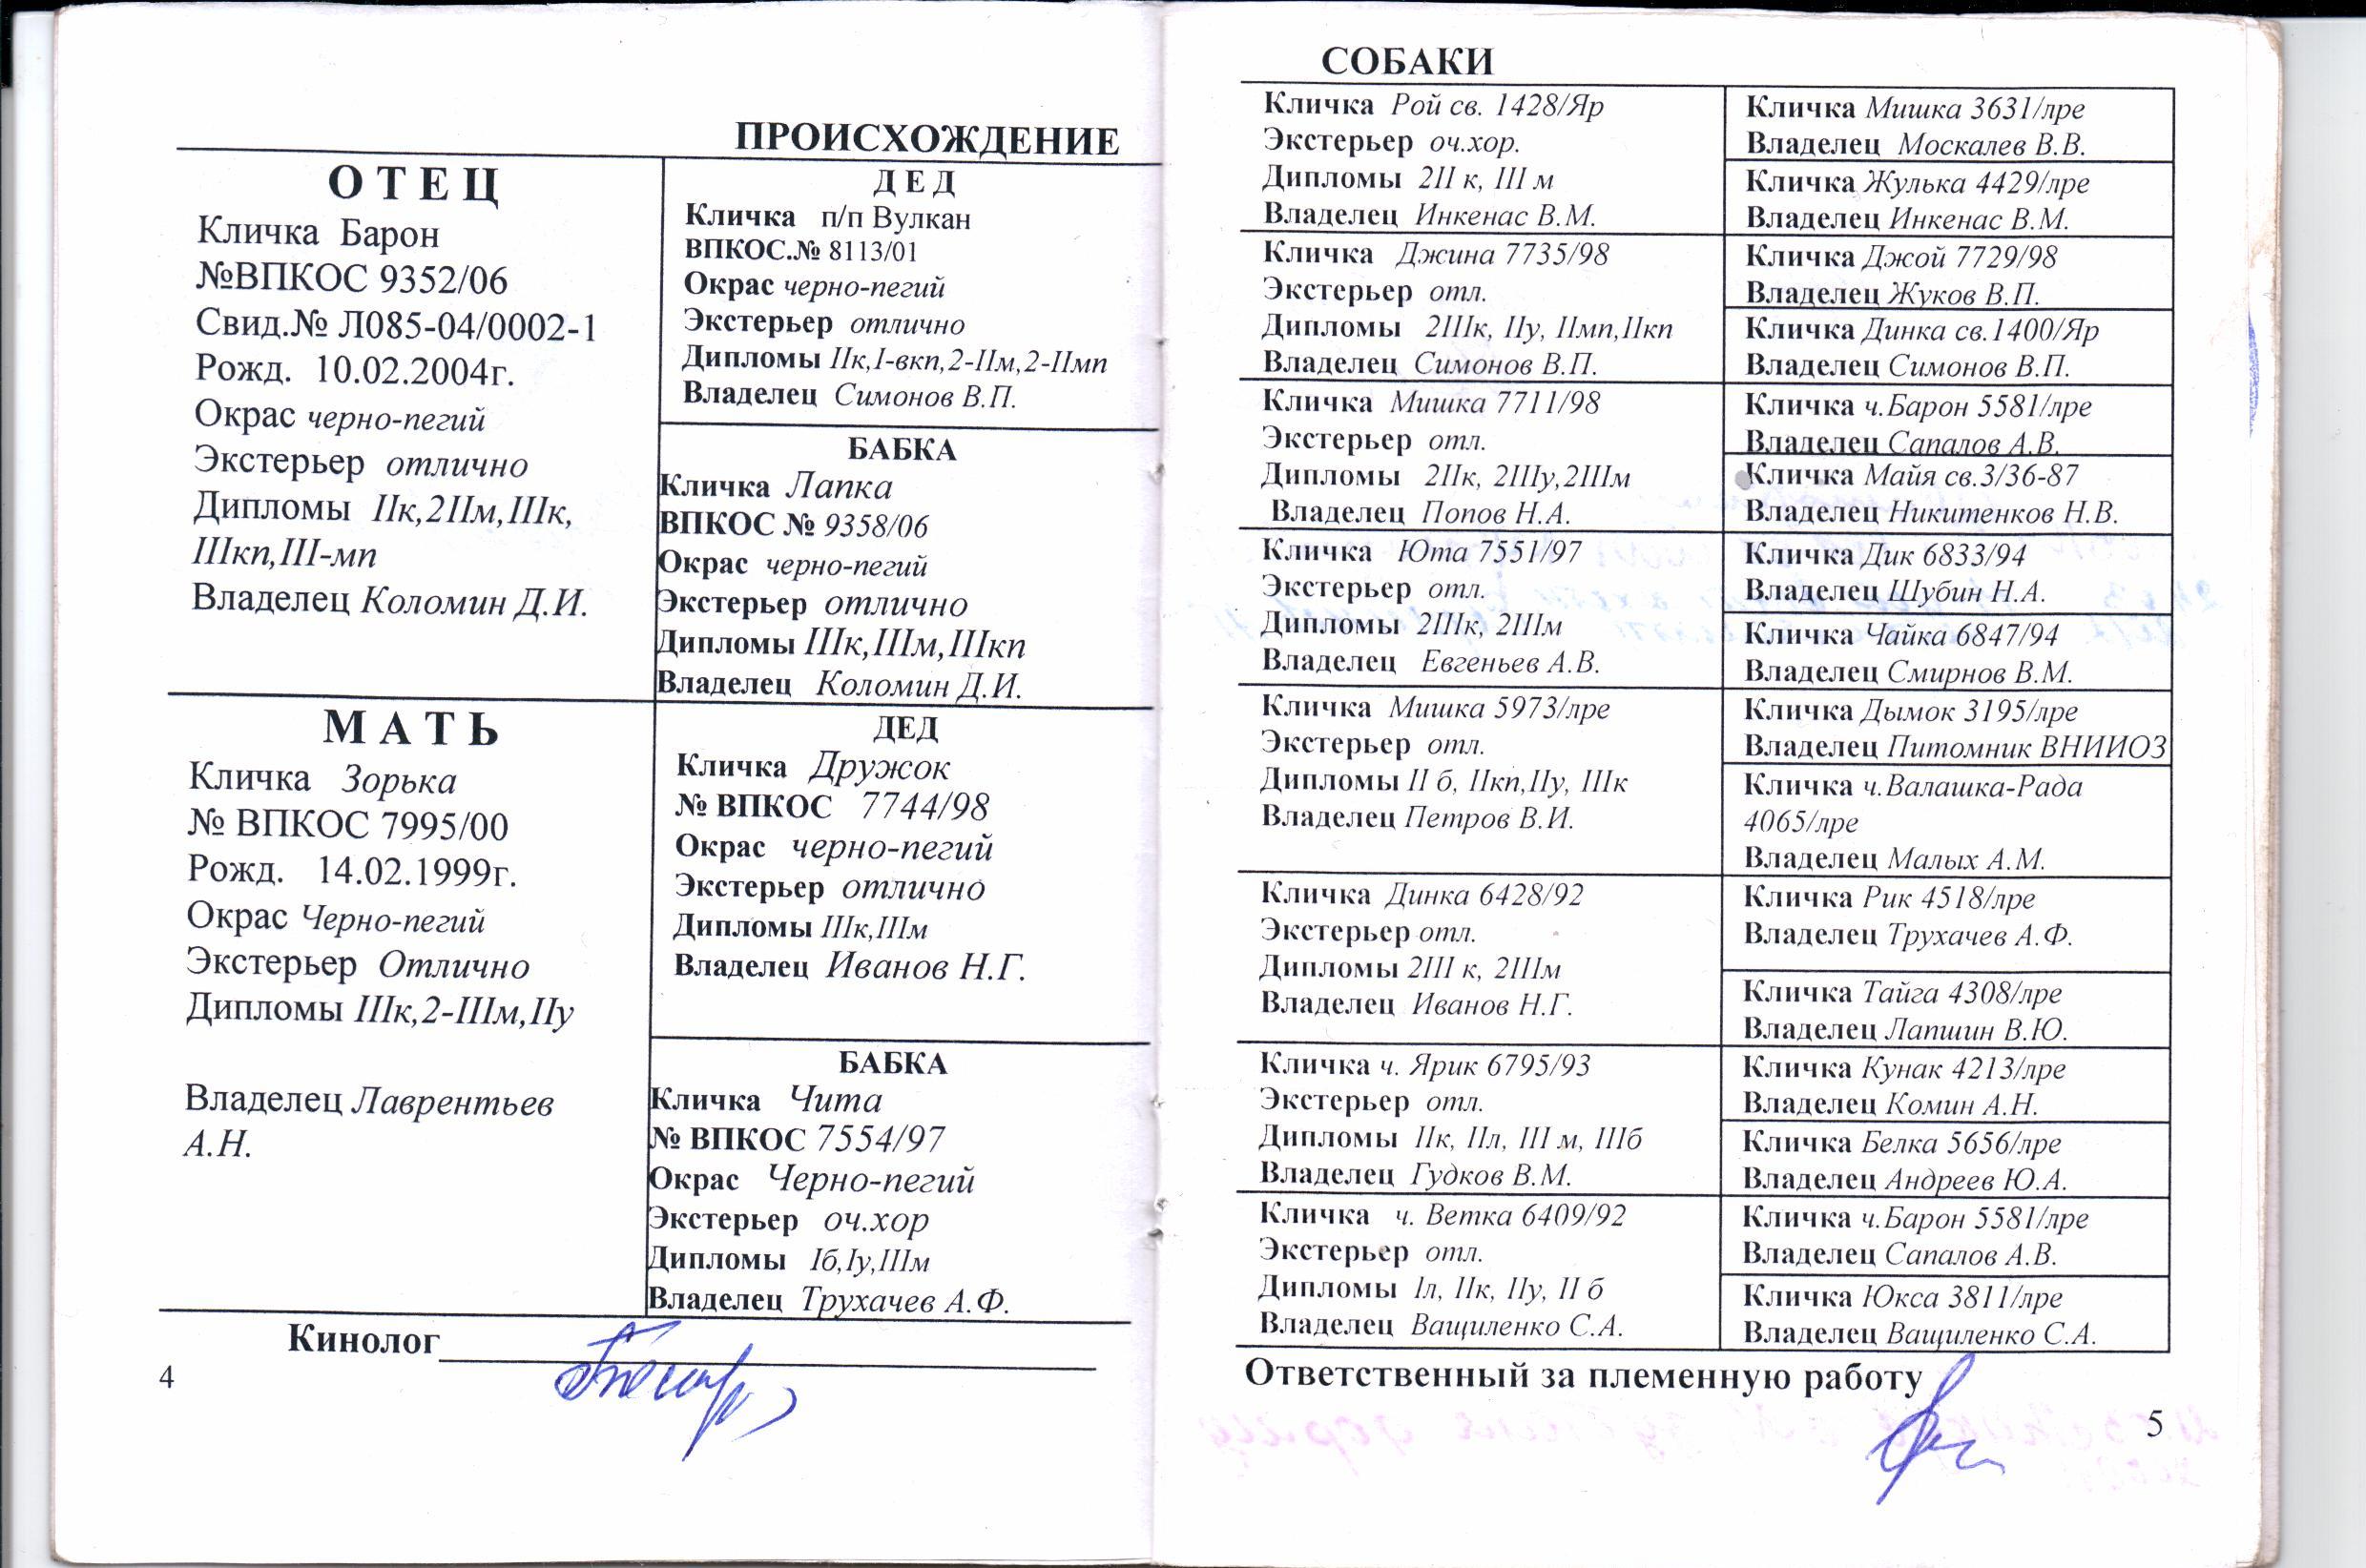 ПРОИСХОЖДЕНИЕ
ОТЕЦ
Кличка Барон
№ВПКОС 9352/06
Свид.№ Л085-04/0002-1
Рожд. 10.02.2004г.
Окрас черно-пегий
Экстерьер отлично
Дипломы IIк,2IIм,IIIк,
IIIкп,III-мп
Владелец Коломин Д.И.
ДЕД
Кличка п/п Вулкан
ВПКОС.№ 8113/01
Окрас черно-пегий
Экстерьер отлично
Дипломы IIк,I-вкп,2-IIм,2-IIмп
Владелец Симонов В.П.
БАБКА
Кличка Лапка
ВПКОС № 9358/06
Окрас черно-пегий
Экстерьер отлично
Дипломы IIIк,IIIм,IIIкп
Владелец Коломин Д.И.
МАТЬ
Кличка Зорька
№ ВПКОС 7995/00
Рожд. 14.02.1999г.
Окрас Черно-пегий
Экстерьер Отлично
Дипломы IIIк,2-IIIм,IIу
Владелец Лаврентьев
А.Н.
ДЕД
Кличка Дружок
№ ВПКОС 7744/98
Окрас черно-пегий
Экстерьер отлично
Дипломы IIIк,IIIм
Владелец Иванов Н.Г.
БАБКА
Кличка Чита
№ ВПКОС 7554/97
Окрас Черно-пегий
Экстерьер оч.хор
Дипломы Iб,Iу,IIIм
Владелец Трухачев А.Ф.
Кинолог
4
СОБАКИ
Кличка Рой св. 1428/Яр
Экстерьер оч.хор.
Дипломы 2II к, III м
Владелец Инкенас В.М.
Кличка Джина 7735/98
Экстерьер отл.
Дипломы 2IIIк, IIу, IIмп,IIкп
Владелец Симонов В.П.
Кличка Мишка 7711/98
Экстерьер отл.
Дипломы 2IIк, 2IIIу,2IIIм
Владелец Попов Н.А.
Кличка Юта 7551/97
Экстерьер отл.
Дипломы 2IIIк, 2IIIм
Владелец Евгеньев А.В.
Кличка Мишка 5973/лре
Экстерьер отл.
Дипломы II б, IIкп,IIу, IIIк
Владелец Петров В.И.
Кличка Динка 6428/92
Экстерьер отл.
Дипломы 2III к, 2IIIм
Владелец Иванов Н.Г.
Кличка ч. Ярик 6795/93
Экстерьер отл.
Дипломы IIк, IIл, III м, IIIб
Владелец Гудков В.М.
Кличка ч. Ветка 6409/92
Экстерьер отл.
Дипломы Iл, IIк, IIу, II б
Владелец Ващиленко С.А.
Кличка Мишка 3631/лре
Владелец Москалев В.В.
Кличка Жулька 4429/лре
Владелец Инкенас В.М.
Кличка Джой 7729/98
Владелец Жуков В.П.
Кличка Динка св.1400/Яр
Владелец Симонов В.П.
Кличка ч.Барон 5581/лре
Владелец Сапалов А.В.
Кличка Майя св.3/36-87
Владелец Никитенков Н.В.
Кличка Дик 6833/94
Владелец Шубин Н.А.
Кличка Чайка 6847/94
Владелец Смирнов В.М.
Кличка Дымок 3195/лре
Владелец Питомник ВНИИОЗ
Кличка ч.Валашка-Рада
4065/лре
Владелец Малых А.М.
Кличка Рик 4518/лре
Владелец Трухачев А.Ф.
Кличка Тайга 4308/лре
Владелец Лапшин В.Ю.
Кличка Кунак 4213/лре
Владелец Комин А.Н.
Кличка Белка 5656/лре
Владелец Андреев Ю.А.
Кличка ч.Барон 5581/лре
Владелец Сапалов А.В.
Кличка Юкса 3811/лре
Владелец Ващиленко С.А.
Ответственный за племенную работу
5